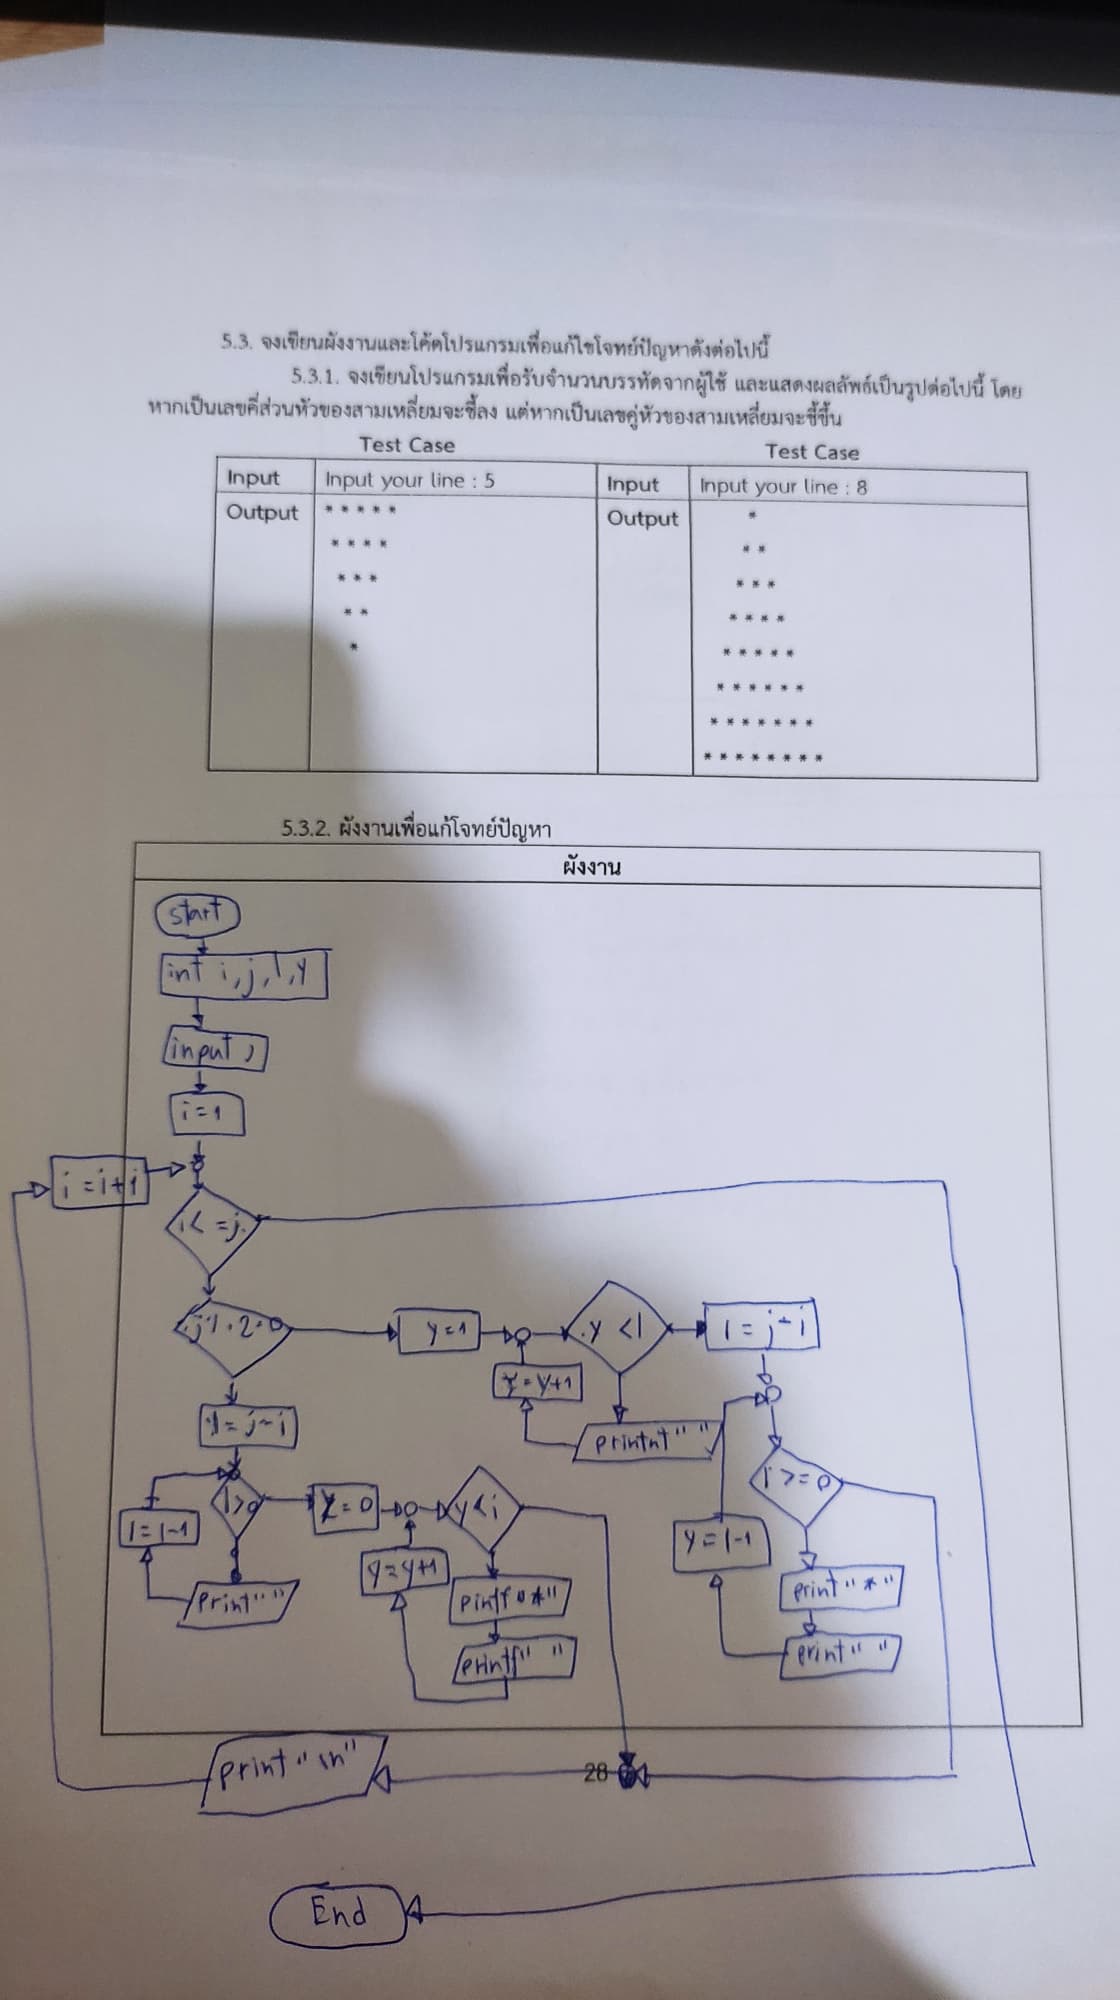 5.3. จงเขียนผังงานและโค้ดโปรแกรมเพื่อแก้ไขโจทย์ปัญหาดังต่อไปนี้
5.3.1. จงเขียนโปรแกรมเพื่อรับจำนวนบรรทัดจากผู้ใช้ และแสดงผลลัพธ์เป็นรูปต่อไปนี้ โดย
หากเป็นเลขคี่ส่วนหัวของสามเหลี่ยมจะชี้ลง แต่หากเป็นเลขคู่หัวของสามเหลี่ยมจะชี้ขึ้น
Test Case
Test Case
Input
Input your line : 5
Input
Input your line : 8
Output
* * * * *
* * * *
* * *
* *
*
Output
*
* *
* * *
* * * *
* * * * *
* * * * * *
* * * * * * *
* * * * * * * *
5.3.2. ผังงานเพื่อแก้โจทย์ปัญหา
ผังงาน
start
int i,j,l,y
input j
i=1
i=i+i
i<=j
j%2=0
y=1
y<l
l=j-i
y=y+1
printnt" "
l=j-i
l>0
l=l-1
print" "
y=0
y<i
y=y+1
pintf"*"
printf" "
i>=0
y=l-1
print"*"
print" "
print"\n"
28
End